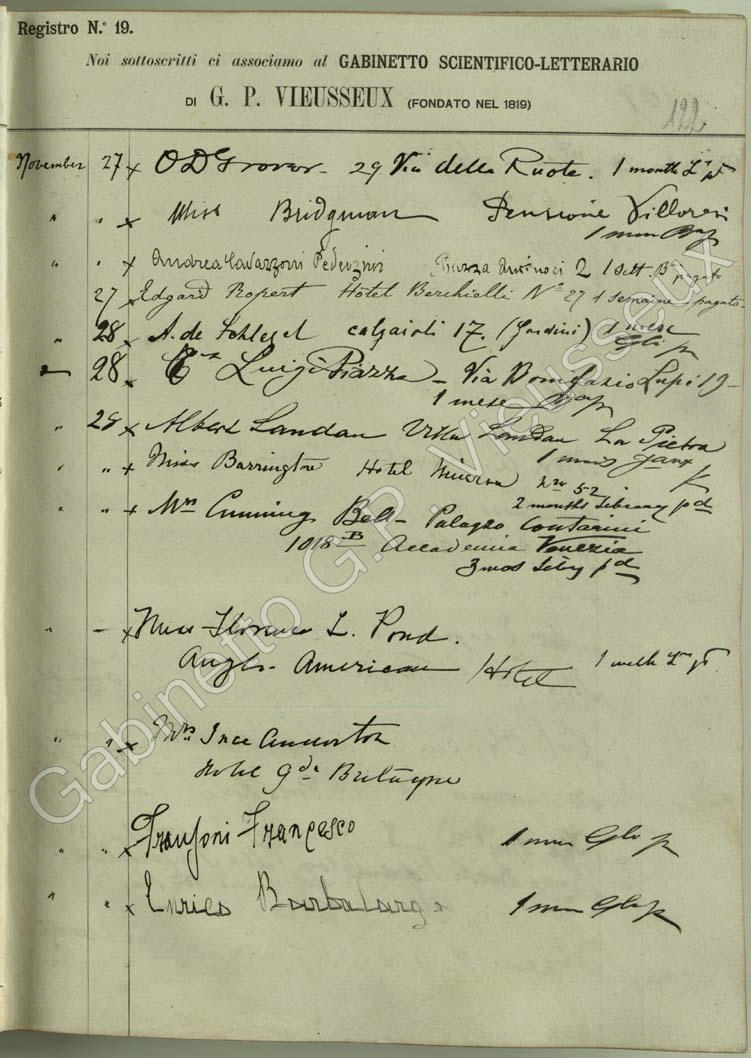 Registro N.º 19.
Noi sottoscritti ci associamo al GABINETTO SCIENTIFICO-LETTERARIO
DI G. P. VIEUSSEUX (FONDATO NEL 1819)
122
November 27 x O D Grover - 29 Via della Ruote. 1 month
" " x Miss Bridgman Pensione Villoresi
1 mese
" " x Andrea Cavazzoni Pederzini Piazza Antinori 2 1 Sett. pagato
27 Edgard Ropert Hotel Berchielli Nº 27 1 semaine pagato
" 28 x A. de Schlegel calzaioli 17. (Jardini) 1 mese
28 x Luigi Piazza - Via Bonifazio Lupi 19 -
1 mese
" 28 x Albert Landau Villa Landau La Pietra
1 mois
" " x Miss Barrington Hotel Minerva 52
" " x Mrs Cumming Bell - Palazzo Contarini
2 months Library pd
1018 B Accademia Venezia
3 mos pd
" - x Miss Florence L. Pond.
Anglo-American Hotel 1 week
" " x Mrs Ince Anderton
Hotel Gde Bretagne
" " x Francesco
" " x Enrico
Gabinetto G.P. Vieusseux